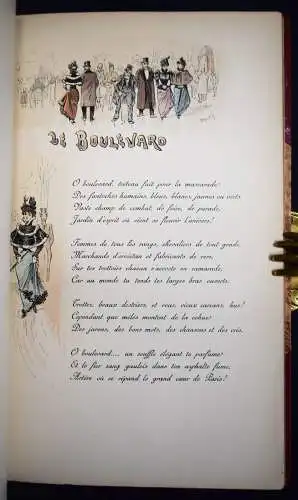 LE BOULEVARD
O boulevard, tréteau fait pour la mascarade
Des fantoches humains, bleus, blancs, jaunes ou verts
Vaste champ de combat, de foire, de parade,
Jardin d'esprit où vient se fleurir l'univers!
Femmes de tous les rangs, chevaliers de tout grade,
Marchands d'orviétan et fabricants de vers,
Sur tes trottoirs chacun s'accoste en camarade,
Car au monde tu tends tes larges bras ouverts.
Trottez, beaux destriers, et vous, vieux carcans, hue!
Cependant que mêlés montent de la cohue
Des jurons, des bons mots, des chansons et des cris.
O boulevard.... un souffle élégant te parfume
Et le fier sang gaulois dans ton asphalte fume,
Artère où se répand le grand cœur de Paris!